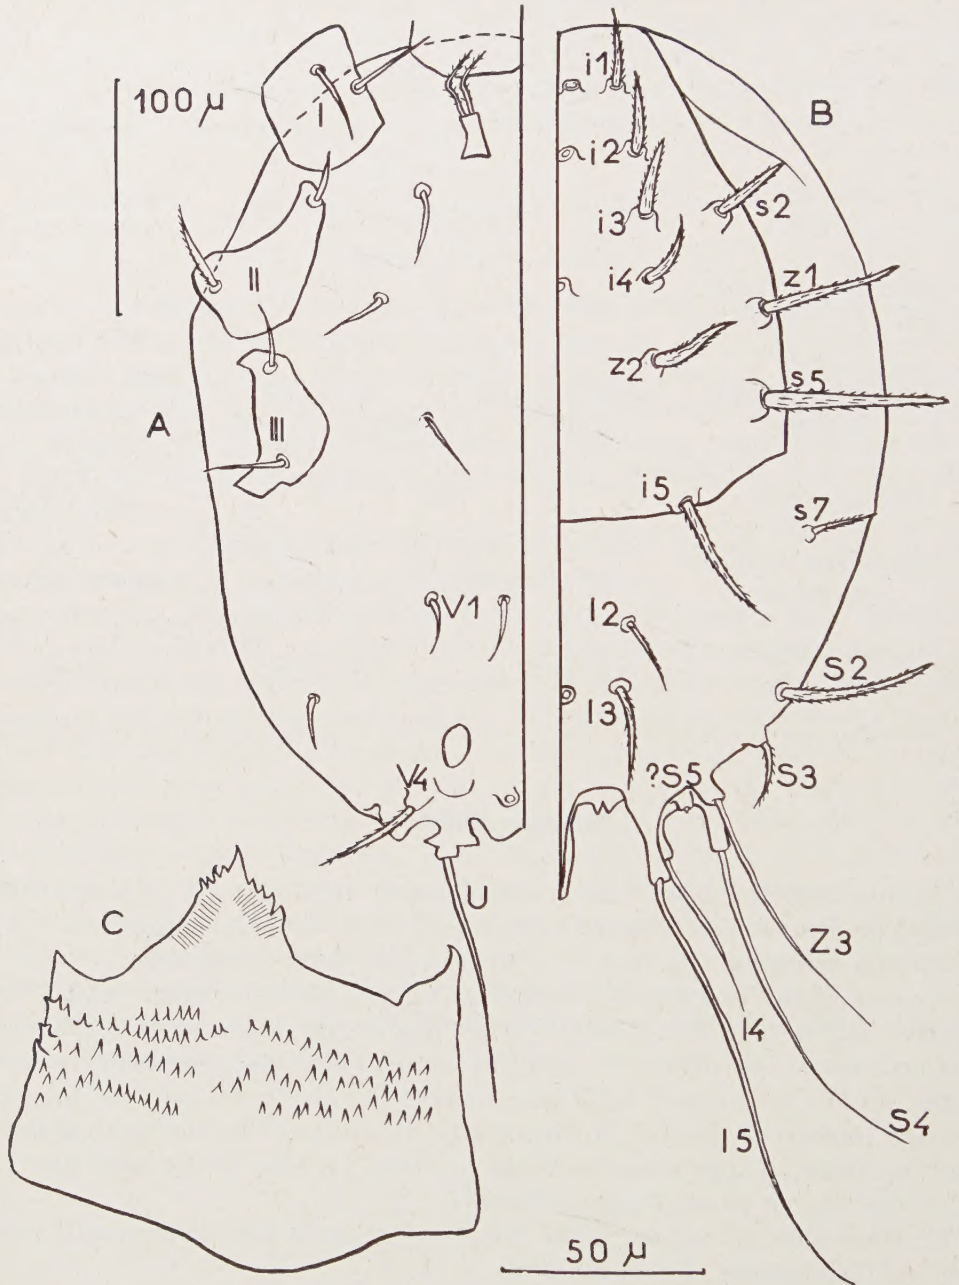 100 µ
A
I
II
III
V1
V4
U
B
i1
i2
i3
i4
s2
z1
z2
s5
i5
s7
I2
I3
S2
?S5
S3
Z3
I4
S4
I5
C
50 µ